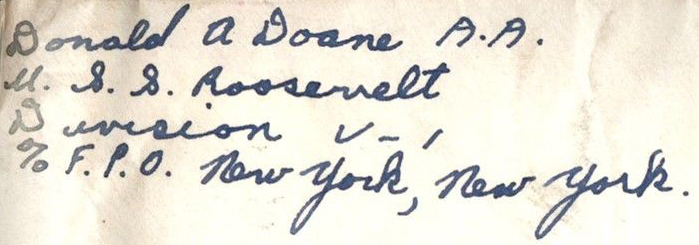 Donald A Doane A.A.
U. S. S. Roosevelt
Division V-1
% F.P.O. New York, New York.